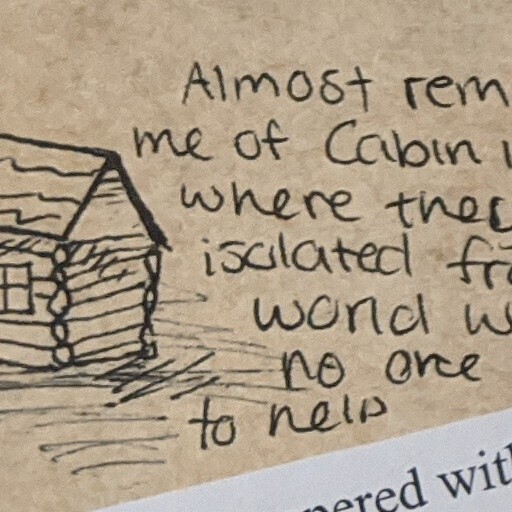 Almost rem
me of Cabin
where they
isolated fr
world w
no one
to help
pered wit